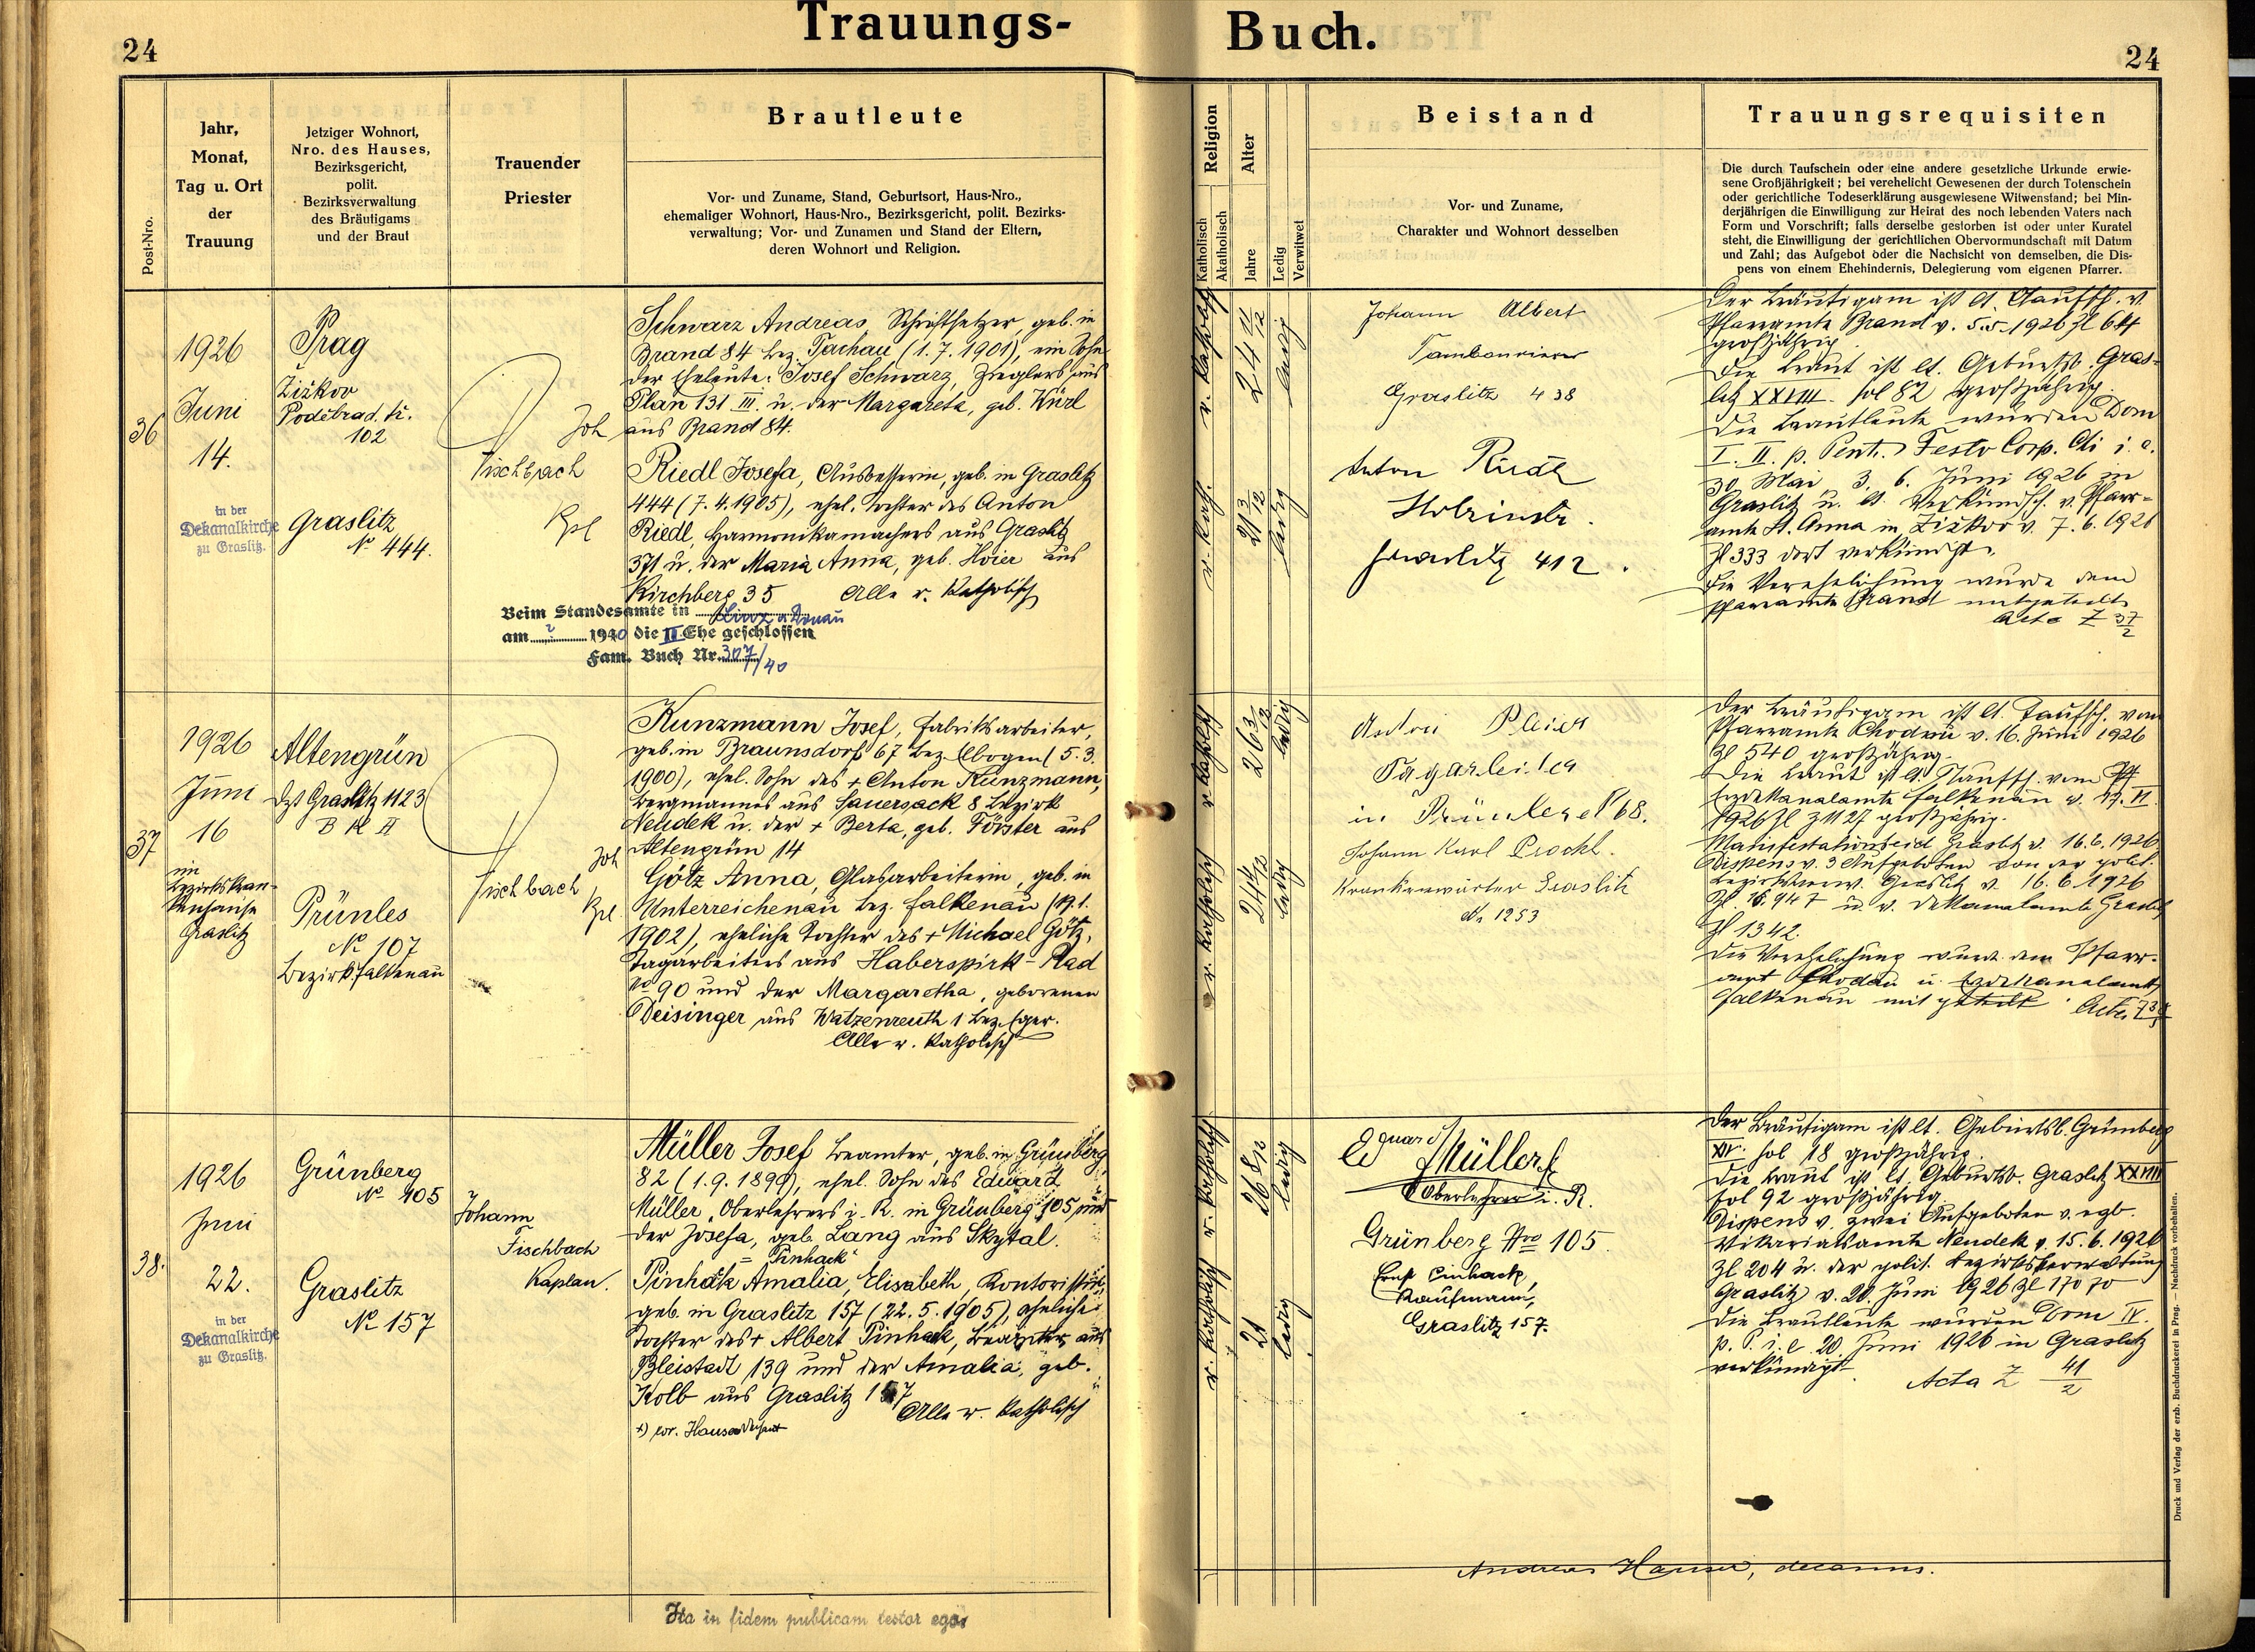 Trauungs-
Buch.
24
24
Post-Nro.
Jahr,
Monat,
Tag u. Ort
der
Trauung
Jetziger Wohnort,
Nro. des Hauses,
Bezirksgericht,
polit.
Bezirksverwaltung
des Bräutigams
und der Braut
Trauender
Priester
Brautleute
Vor- und Zuname, Stand, Geburtsort, Haus-Nro.,
ehemaliger Wohnort, Haus-Nro., Bezirksgericht, polit. Bezirks-
verwaltung; Vor- und Zunamen und Stand der Eltern,
deren Wohnort und Religion.
Religion
Katholisch
Akatholisch
Alter
Jahre
Ledig
Verwitwet
Beistand
Vor- und Zuname,
Charakter und Wohnort desselben
Trauungsrequisiten
Die durch Taufschein oder eine andere gesetzliche Urkunde erwie-
sene Großjährigkeit; bei verehelicht Gewesenen der durch Totenschein
oder gerichtliche Todeserklärung ausgewiesene Witwenstand; bei Min-
derjährigen die Einwilligung zur Heirat des noch lebenden Vaters nach
Form und Vorschrift; falls derselbe gestorben ist oder unter Kuratel
steht, die Einwilligung der gerichtlichen Obervormundschaft mit Datum
und Zahl; das Aufgebot oder die Nachsicht von demselben, die Dis-
pens von einem Ehehindernis, Delegierung vom eigenen Pfarrer.
36
1926
Juni
14.
in der
Dekanalkirche
zu Graslitz.
Prag
Žižkov
Poděbrad. tř.
102
Graslitz
№ 444.
Joh
Fischbach
Kpl
Schwarz Andreas, Schriftsetzer, geb. in
Brand 84 bez. Tachau (1.7.1901), ein Sohn
der Eheleute: Josef Schwarz, Zieglers aus
Plan 131 III. u. der Margareta, geb. Würl
aus Brand 84.
Riedl Josefa, Ausbesserin, geb. in Graslitz
444 (7.4.1905), ehel. Tochter des Anton
Riedl, Harmonikamachers aus Graslitz
371 u. der Maria Anna, geb. Hoier aus
Kirchberg 35 Alle r. katholisch
Beim Standesamte in Linz a. Donau
am 2 1940 die II Ehe geschlossen
Fam. Buch Nr. 307/40
r. katholisch
24 11/12
ledig
r. kath.
21 3/12
ledig
Johann Albert
Tambourierer
Graslitz 438
Anton Riedl
Holzinstr.
Graslitz 412.
Der Bräutigam ist lt. Taufsch. v.
Pfarramte Brand v. 5.5.1926 Zl 644
großjährig
Die Braut ist lt. Geburtsb. Gras-
litz XXVIII. fol 82 großjährig.
Die Brautleute wurden Dom
I. II. p. Pent. Festo Corp. Chi i. e.
30. Mai 3. 6. Juni 1926 in
Graslitz u. lt. Verkündsch. v. Pfarr-
amte St. Anna in Žižkov v. 7.6.1926
Zl 333 dort verkündigt.
Die Verehelichung wurde dem
Pfarramte Brand mitgeteilt
Acta Z 37/2
37
1926
Juni
16
im
Bezirkskran-
kenhause
Graslitz
Altengrün
dzt Graslitz 1123
Prünles
№ 107
Bezirk Falkenau
Joh
Fischbach
Kpl.
Kunzmann Josef, Fabriksarbeiter,
geb. in Braunsdorf 67 bez. Elbogen (5.3.
1900), ehel. Sohn des + Anton Kunzmann,
Bergmannes aus Sauersack 8 Bezirk
Neudek u. der + Berta, geb. Förster aus
Altengrün 14
Götz Anna, Glasarbeiterin, geb. in
Unterreichenau bez. Falkenau (19.1.
1902), eheliche Tochter des + Michael Götz,
Tagarbeiters aus Haberspirk-Rad
№ 90 und der Margaretha, geborenen
Deisinger aus Watzenreuth 1 bez. Eger.
Alle r. katholisch
r. katholisch
26 3/12
ledig
r. katholisch
ledig
Tagarbeiter
68.
Johann Karl Prockl.
Krankenwärter Graslitz
№ 1253
Der Bräutigam ist lt. Taufsch. vom
Pfarramte Chodau v. 16. Juni 1926
Zl 540 großjährig.
Die Braut ist lt. Taufsch. vom
Erzdekanalamte Falkenau v. 17. VI.
großjährig.
Manifestationseid Graslitz v. 16.6.1926
Dispens v. 3 Aufgeboten von der polit.
Bezirksverw. Graslitz v. 16.6.1926
u. v. Dekanalamte Graslitz
Zl 1342.
Die Verehelichung wurde dem Pfarr-
amt Chodau u. Erzdekanalamte
Falkenau mitgeteilt. Acta Z
38.
1926
Juni
22.
in der
Dekanalkirche
zu Graslitz.
Grünberg
№ 105
Graslitz
№ 157
Johann
Fischbach
Kaplan.
Müller Josef Beamter, geb. in Grünberg
82 (1.9.1899), ehel. Sohn des Eduard
Müller, Oberlehrers i. R. in Grünberg 105 und
der Josefa, geb. Lang aus Skytal.
= Pinhack
Pinhack Amalia, Elisabeth, Kontoristin,
geb. in Graslitz 157 (22.5.1905), eheliche
Tochter des + Albert Pinhack, Beamter aus
Bleistadt 139 und der Amalia, geb.
Kolb aus Graslitz 157
Alle r. katholisch
+) cor. Hauser Dechant
r. katholisch
26 8/12
ledig
r. katholisch
21
ledig
Eduard Müller
Oberlehrer i. R.
Grünberg Nro 105.
Ernst Pinhack,
Kaufmann,
Graslitz 157.
Der Bräutigam ist lt. Geburtsb. Grünberg
XIV. fol 18 großjährig.
Die Braut ist lt. Geburtsb. Graslitz XXVIII
fol 92 großjährig.
Dispens v. zwei Aufgeboten v.
Vikariatsamte Neudek v. 15.6.1926
Zl 204 u. der polit. Bezirksverwaltung
Graslitz v. 20. Juni 1926 Zl 17070
Die Brautleute wurden Dom IV.
p. P. i. e. 20. Juni 1926 in Graslitz
verkündigt.
Acta Z 41/2
Ita in fidem publicam testor ego:
Andreas Hauser, decanus.
Druck und Verlag der erzb. Buchdruckerei in Prag. — Nachdruck vorbehalten.